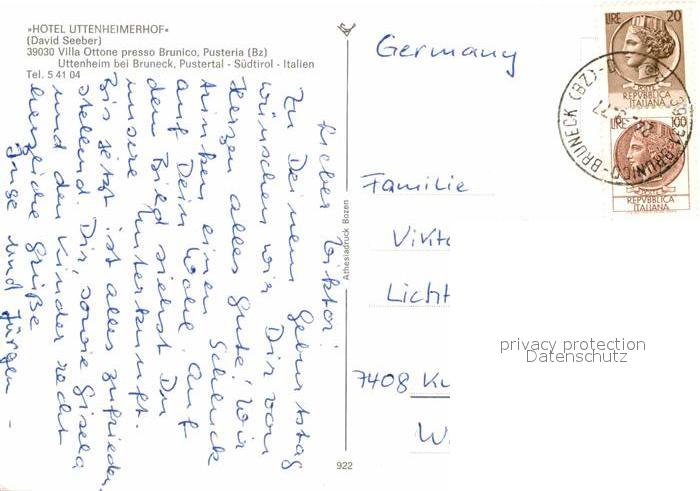 »HOTEL UTTENHEIMERHOF«
(David Seeber)
39030 Villa Ottone presso Brunico, Pusteria (Bz)
Uttenheim bei Bruneck, Pustertal - Südtirol - Italien
Tel. 5 41 04
Lieber Viktor!
Zu Deinem Geburtstag
wünschen wir Dir von
Herzen alles Gute! Wir
trinken einen Schluck
auf Dein Wohl! Auf
dem Bild siehst Du
unsere Unterkunft.
Bis jetzt ist alles zufrieden-
stellend. Dir, sowie Gisela
und den Kinder recht
herzliche Grüße
Inge und Jürgen -
Athesiadruck Bozen
922
Germany
Familie
Vikto
Licht
7408 Ku
W.
LIRE 20
POSTE
REPVBBLICA
ITALIANA
LIRE 100
REPVBBLICA
ITALIANA
39031 BRUNICO-BRUNECK (BZ)
privacy protection
Datenschutz